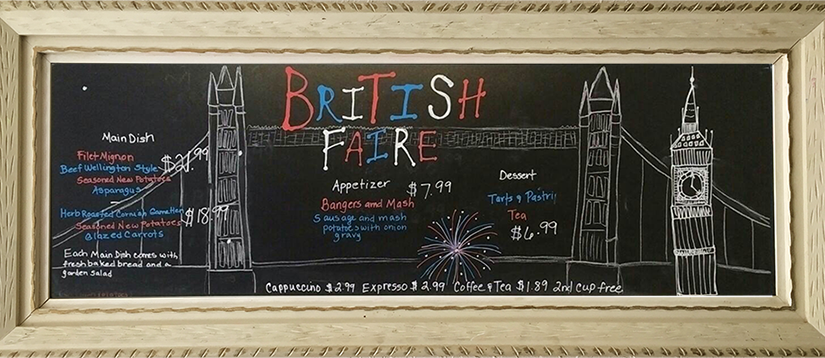 BRITISH
FAIRE
Main Dish
Filet Mignon
Beef Wellington Style
Seasoned New Potatoes
Asparagus
$21.99
Herb Roasted Cornish Game Hen
Seasoned New Potatoes
Glazed Carrots
$18.99
Each Main Dish comes with
fresh baked bread and a
garden salad
Appetizer
$7.99
Bangers and Mash
Sausage and mash
potatoes with onion
gravy
Dessert
Tarts &
Tea
$6.99
Cappuccino $2.99 Expresso $2.99 Coffee & Tea $1.89 2nd cup free